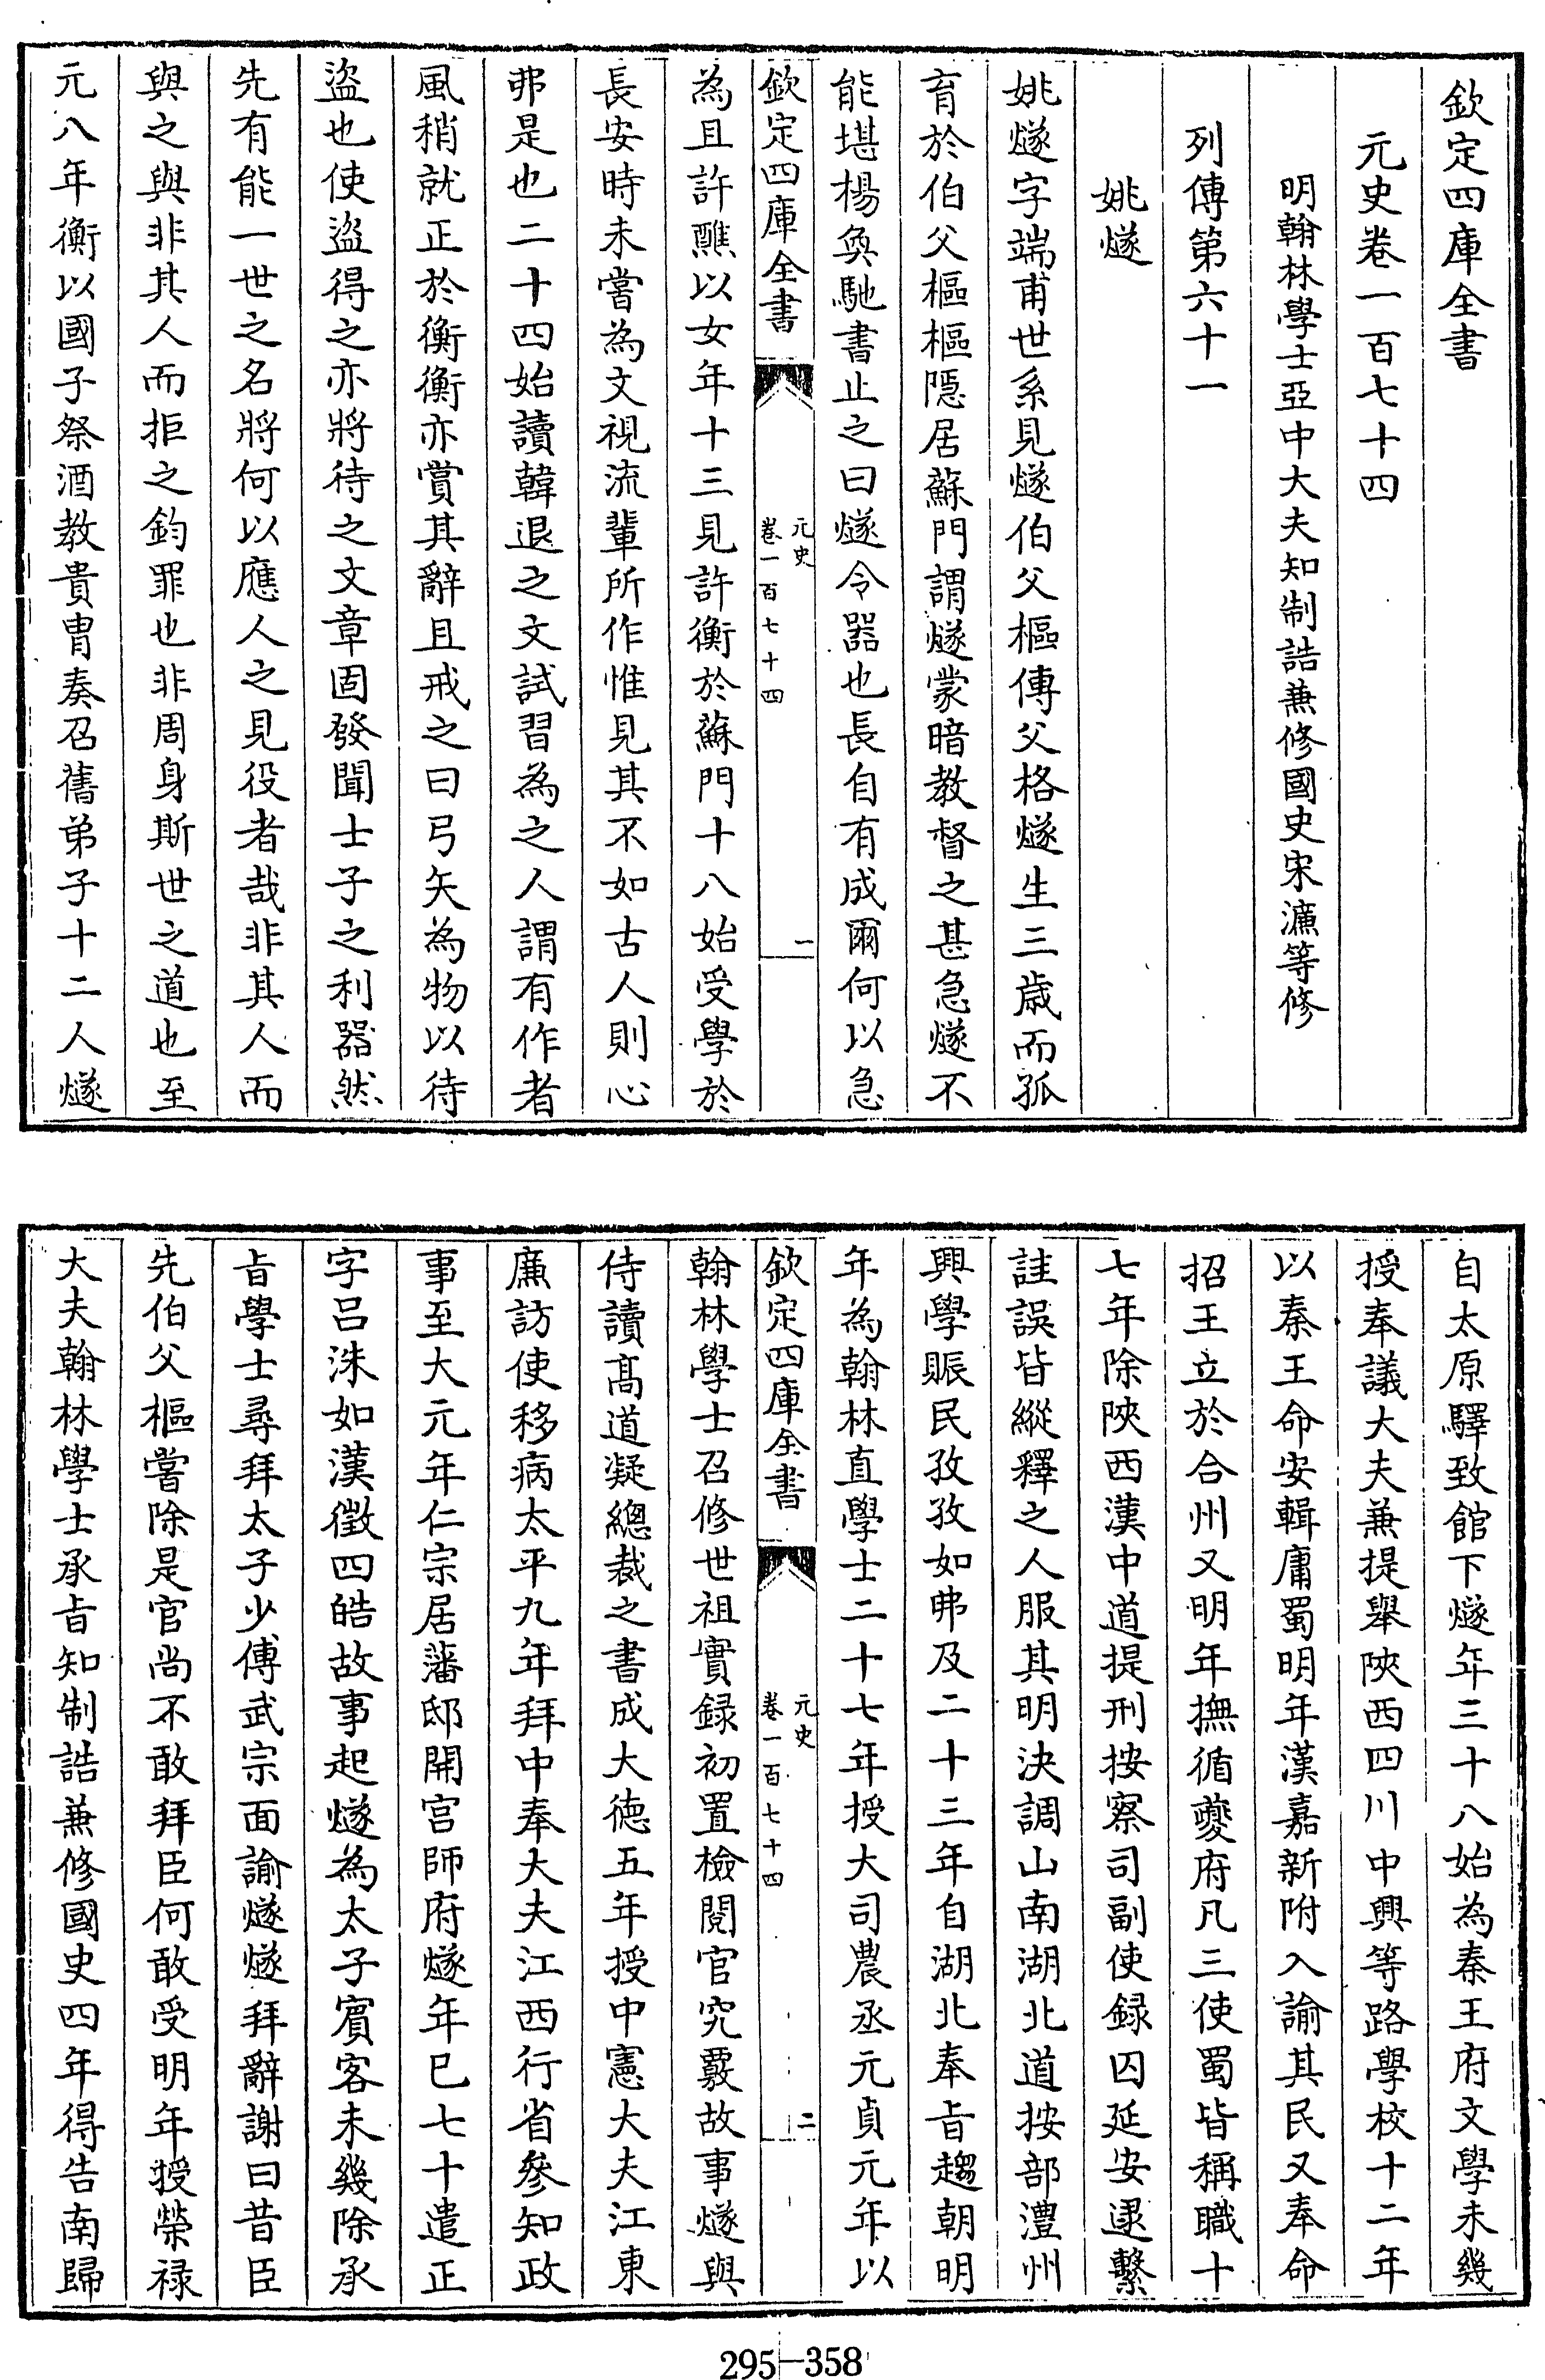 欽定四庫全書
元史卷一百七十四
明翰林學士亞中大夫知制誥兼修國史宋濂等修
列傳第六十一
姚燧
姚燧字端甫世系見燧伯父樞傳父格燧生三歳而孤
育於伯父樞樞隱居蘇門謂燧蒙暗教督之甚急燧不
能堪楊奐馳書止之曰燧令器也長自有成爾何以急
欽定四庫全書
元史
卷一百七十四
一
為且許醮以女年十三見許衡於蘇門十八始受學於
長安時未嘗為文視流輩所作惟見其不如古人則心
弗是也二十四始讀韓退之文試習為之人謂有作者
風稍就正於衡衡亦賞其辭且戒之曰弓矢為物以待
盜也使盜得之亦將待之文章固發聞士子之利器然
先有能一世之名將何以應人之見役者哉非其人而
與之與非其人而拒之鈞罪也非周身斯世之道也至
元八年衡以國子祭酒教貴冑奏召舊弟子十二人燧
自太原驛致館下燧年三十八始為秦王府文學未幾
授奉議大夫兼提舉陜西四川中興等路學校十二年
以秦王命安輯庸蜀明年漢嘉新附入諭其民又奉命
招王立於合州又明年撫循夔府凡三使蜀皆稱職十
七年除陜西漢中道提刑按察司副使録囚延安逮繫
詿誤皆縱釋之人服其明決調山南湖北道按部澧州
興學賑民孜孜如弗及二十三年自湖北奉㫖趨朝明
年為翰林直學士二十七年授大司農丞元貞元年以
欽定四庫全書
元史
卷一百七十四
二
翰林學士召修世祖實録初置檢閱官究覈故事燧與
侍讀髙道凝總裁之書成大徳五年授中憲大夫江東
廉訪使移病太平九年拜中奉大夫江西行省參知政
事至大元年仁宗居藩邸開宫師府燧年已七十遣正
字吕洙如漢徵四皓故事起燧為太子賓客未幾除承
㫖學士尋拜太子少傅武宗面諭燧燧拜辭謝曰昔臣
先伯父樞嘗除是官尚不敢拜臣何敢受明年授榮禄
大夫翰林學士承㫖知制誥兼修國史四年得告南歸
295-358